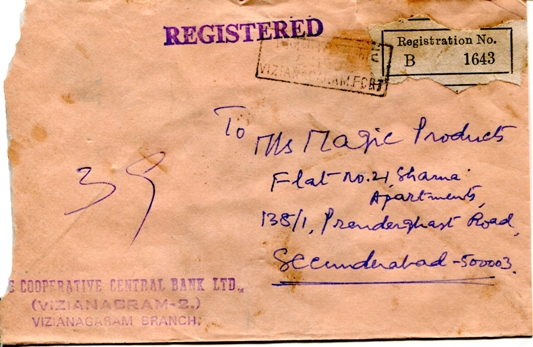 REGISTERED
Registration No.
B 1643
VIZIANAGARAM FORT
To
M/s Magic Products
Flat no. 21, Sharma
Apartments,
138/1, Prenderghast Road,
Secunderabad - 500003.
39
E COOPERATIVE CENTRAL BANK LTD.,
(VIZIANAGRAM-2.)
VIZIANAGARAM BRANCH;